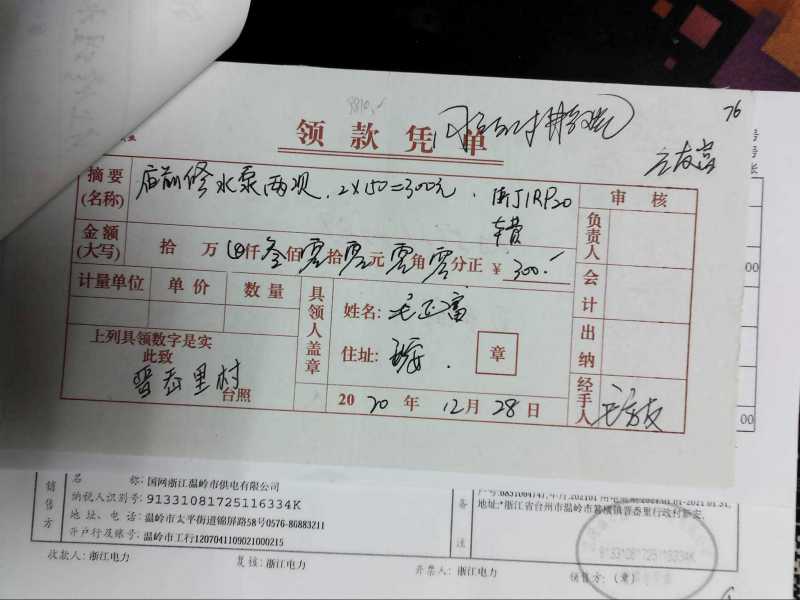 76
领款凭单
摘要
(名称)
店前修水泵两次. 2×150=300元.
车费
审核
金额
(大写)
拾 万 仟 叁佰 零拾 零元 零角 零分正 ¥ 300.-
负责人
会计
出纳
经手人
计量单位 单价 数量
具领人盖章
姓名: 毛正富
住址:
章
上列具领数字是实
此致
晋岙里村
台照
2020年 12月 28日
销售方
名 称: 国网浙江温岭市供电有限公司
纳税人识别号: 91331081725116334K
地 址、电 话: 温岭市太平街道锦屏路58号0576-86883211
开户行及账号: 温岭市工行1207041109021000215
备注
地址:*浙江省台州市温岭市箬横镇晋岙里行政村新宏.
91331081725116334K
收款人: 浙江电力
复核: 浙江电力
开票人: 浙江电力
销售方: (章)
00
00